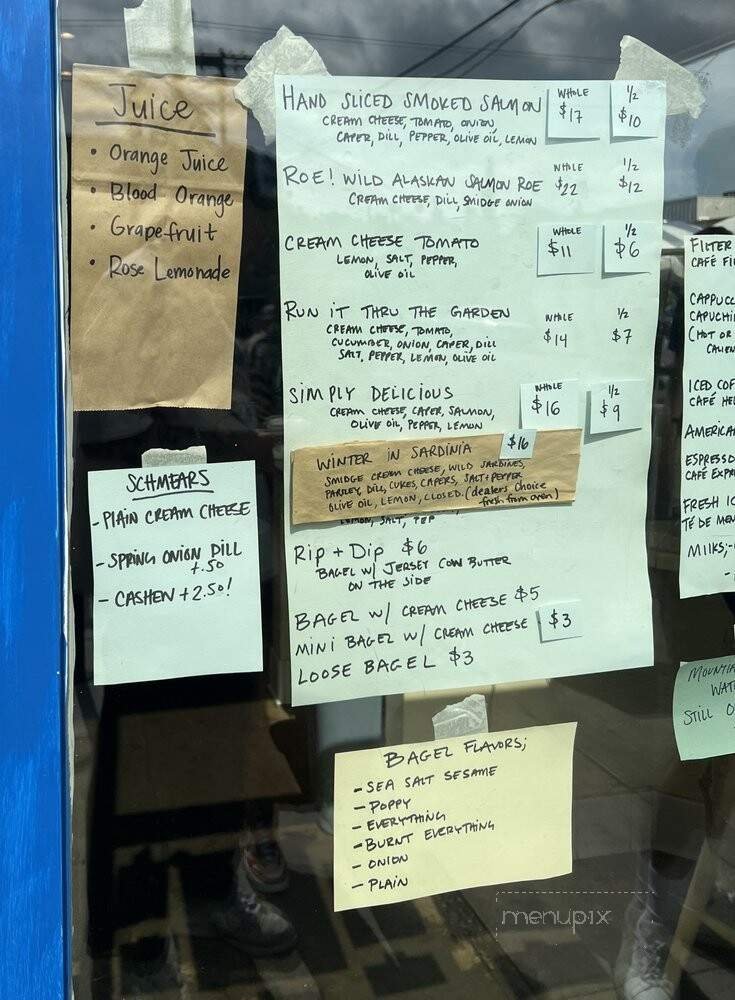 Juice
• Orange Juice
• Blood Orange
• Grapefruit
• Rose Lemonade
SCHMEARS
- PLAIN CREAM CHEESE
- SPRING ONION DILL
+.50
- CASHEW +2.50!
HAND SLICED SMOKED SALMON WHOLE $17 1/2 $10
CREAM CHEESE, TOMATO, ONION,
CAPER, DILL, PEPPER, OLIVE OIL, LEMON
ROE! WILD ALASKAN SALMON ROE WHOLE $22 1/2 $12
CREAM CHEESE, DILL, SMIDGE ONION
CREAM CHEESE TOMATO WHOLE $11 1/2 $6
LEMON, SALT, PEPPER,
OLIVE OIL
RUN IT THRU THE GARDEN WHOLE $14 1/2 $7
CREAM CHEESE, TOMATO,
CUCUMBER, ONION, CAPER, DILL
SALT, PEPPER, LEMON, OLIVE OIL
SIMPLY DELICIOUS WHOLE $16 1/2 $9
CREAM CHEESE, CAPER, SALMON,
OLIVE OIL, PEPPER, LEMON
WINTER IN SARDINIA $16
SMIDGE CREAM CHEESE, WILD SARDINES,
PARSLEY, DILL, CUKES, CAPERS, SALT+PEPPER
OLIVE OIL, LEMON, CLOSED. (dealers choice
fresh from oven)
LEMON, SALT, PEP
Rip + Dip $6
BAGEL W/ JERSEY COW BUTTER
ON THE SIDE
BAGEL W/ CREAM CHEESE $5
MINI BAGEL W/ CREAM CHEESE $3
LOOSE BAGEL $3
BAGEL FLAVORS;
- SEA SALT SESAME
- POPPY
- EVERYTHING
- BURNT EVERYTHING
- ONION
- PLAIN
FILTER
CAFÉ FI
CAPPUCC
CAPUCHI
(HOT OR
CALIEN
ICED COF
CAFÉ HE
AMERICA
ESPRESSO
CAFÉ EXPR
FRESH
TÉ DE MEN
MILKS;-
MOUNTA
WAT
STILL O
menupix